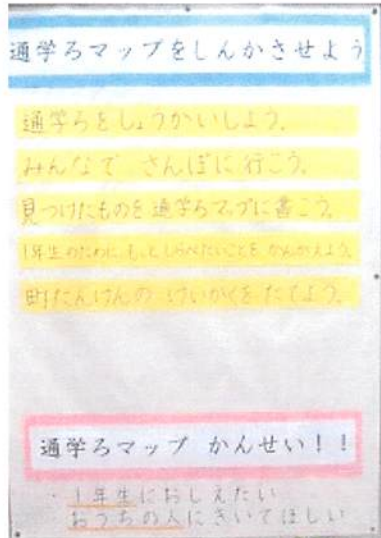 通学ろマップをしんかさせよう
通学ろをしょうかいしよう。
みんなで さんぽに行こう。
見つけたものを通学ろマップに書こう。
1年生のために、もっとしらべたいことを かんがえよう。
町たんけんの けいかくを たてよう。
通学ろマップ かんせい!!
・1年生におしえたい
おうちの人にきいてほしい